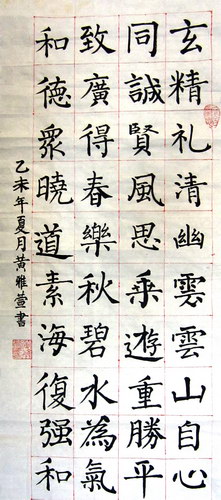 玄精礼清幽雲雲山自心
同誠賢風思乘遊重勝平
致廣得春樂秋碧水為氣
和德眾曉道素海復强和
乙未年夏月黃雅萱書